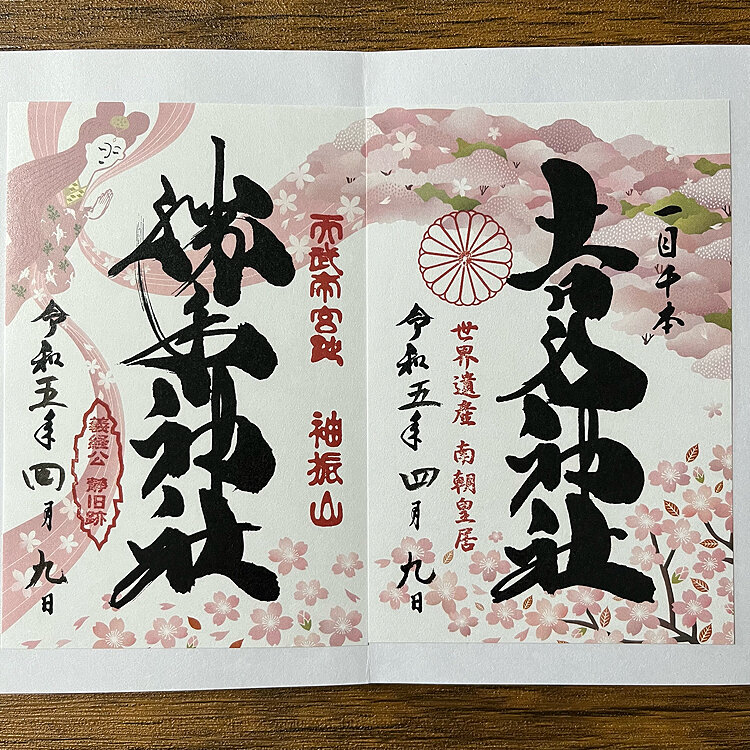 一目千本
吉水神社
世界遺産 南朝皇居
令和五年四月九日
天武帝宮 袖振山
勝手神社
義経公 静旧跡
令和五年四月九日